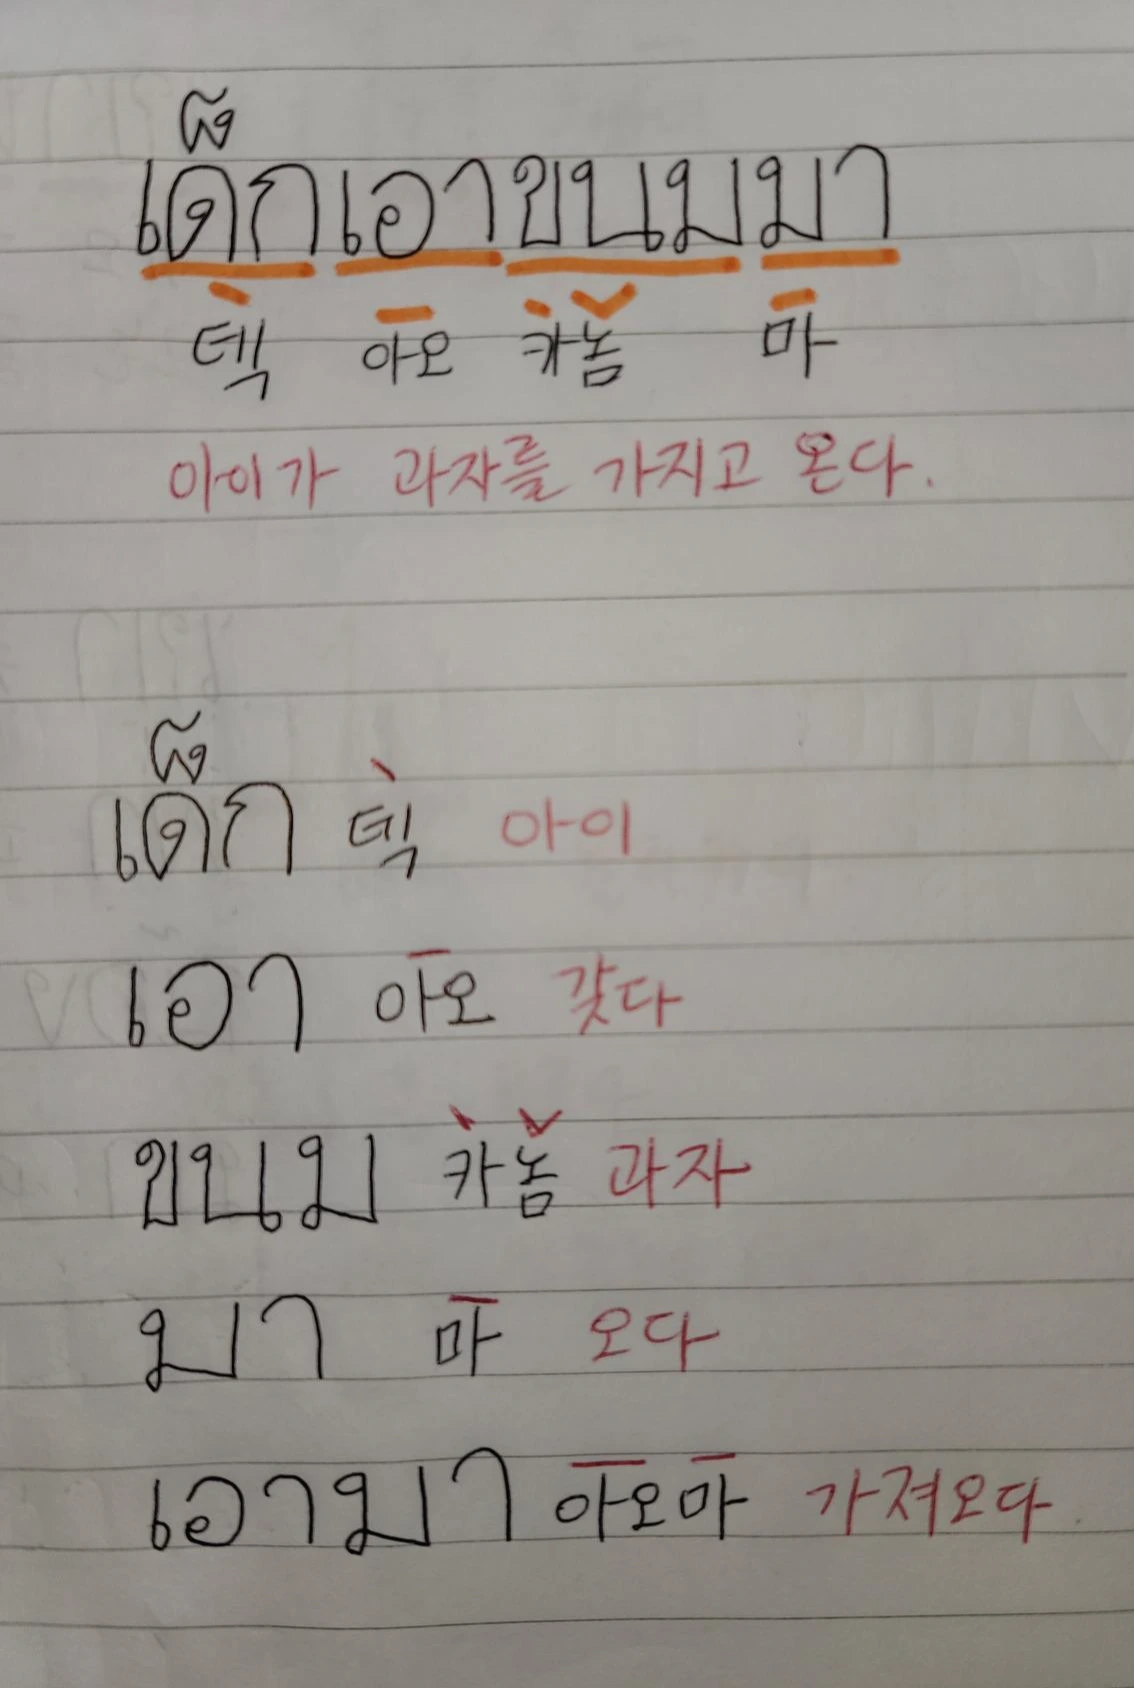 เด็กเอาขนมมา
텍 아오 카놈 마
아이가 과자를 가지고 온다.
เด็ก 텍 아이
เอา 아오 갖다
ขนม 카놈 과자
มา 마 오다
เอามา 아오마 가져오다